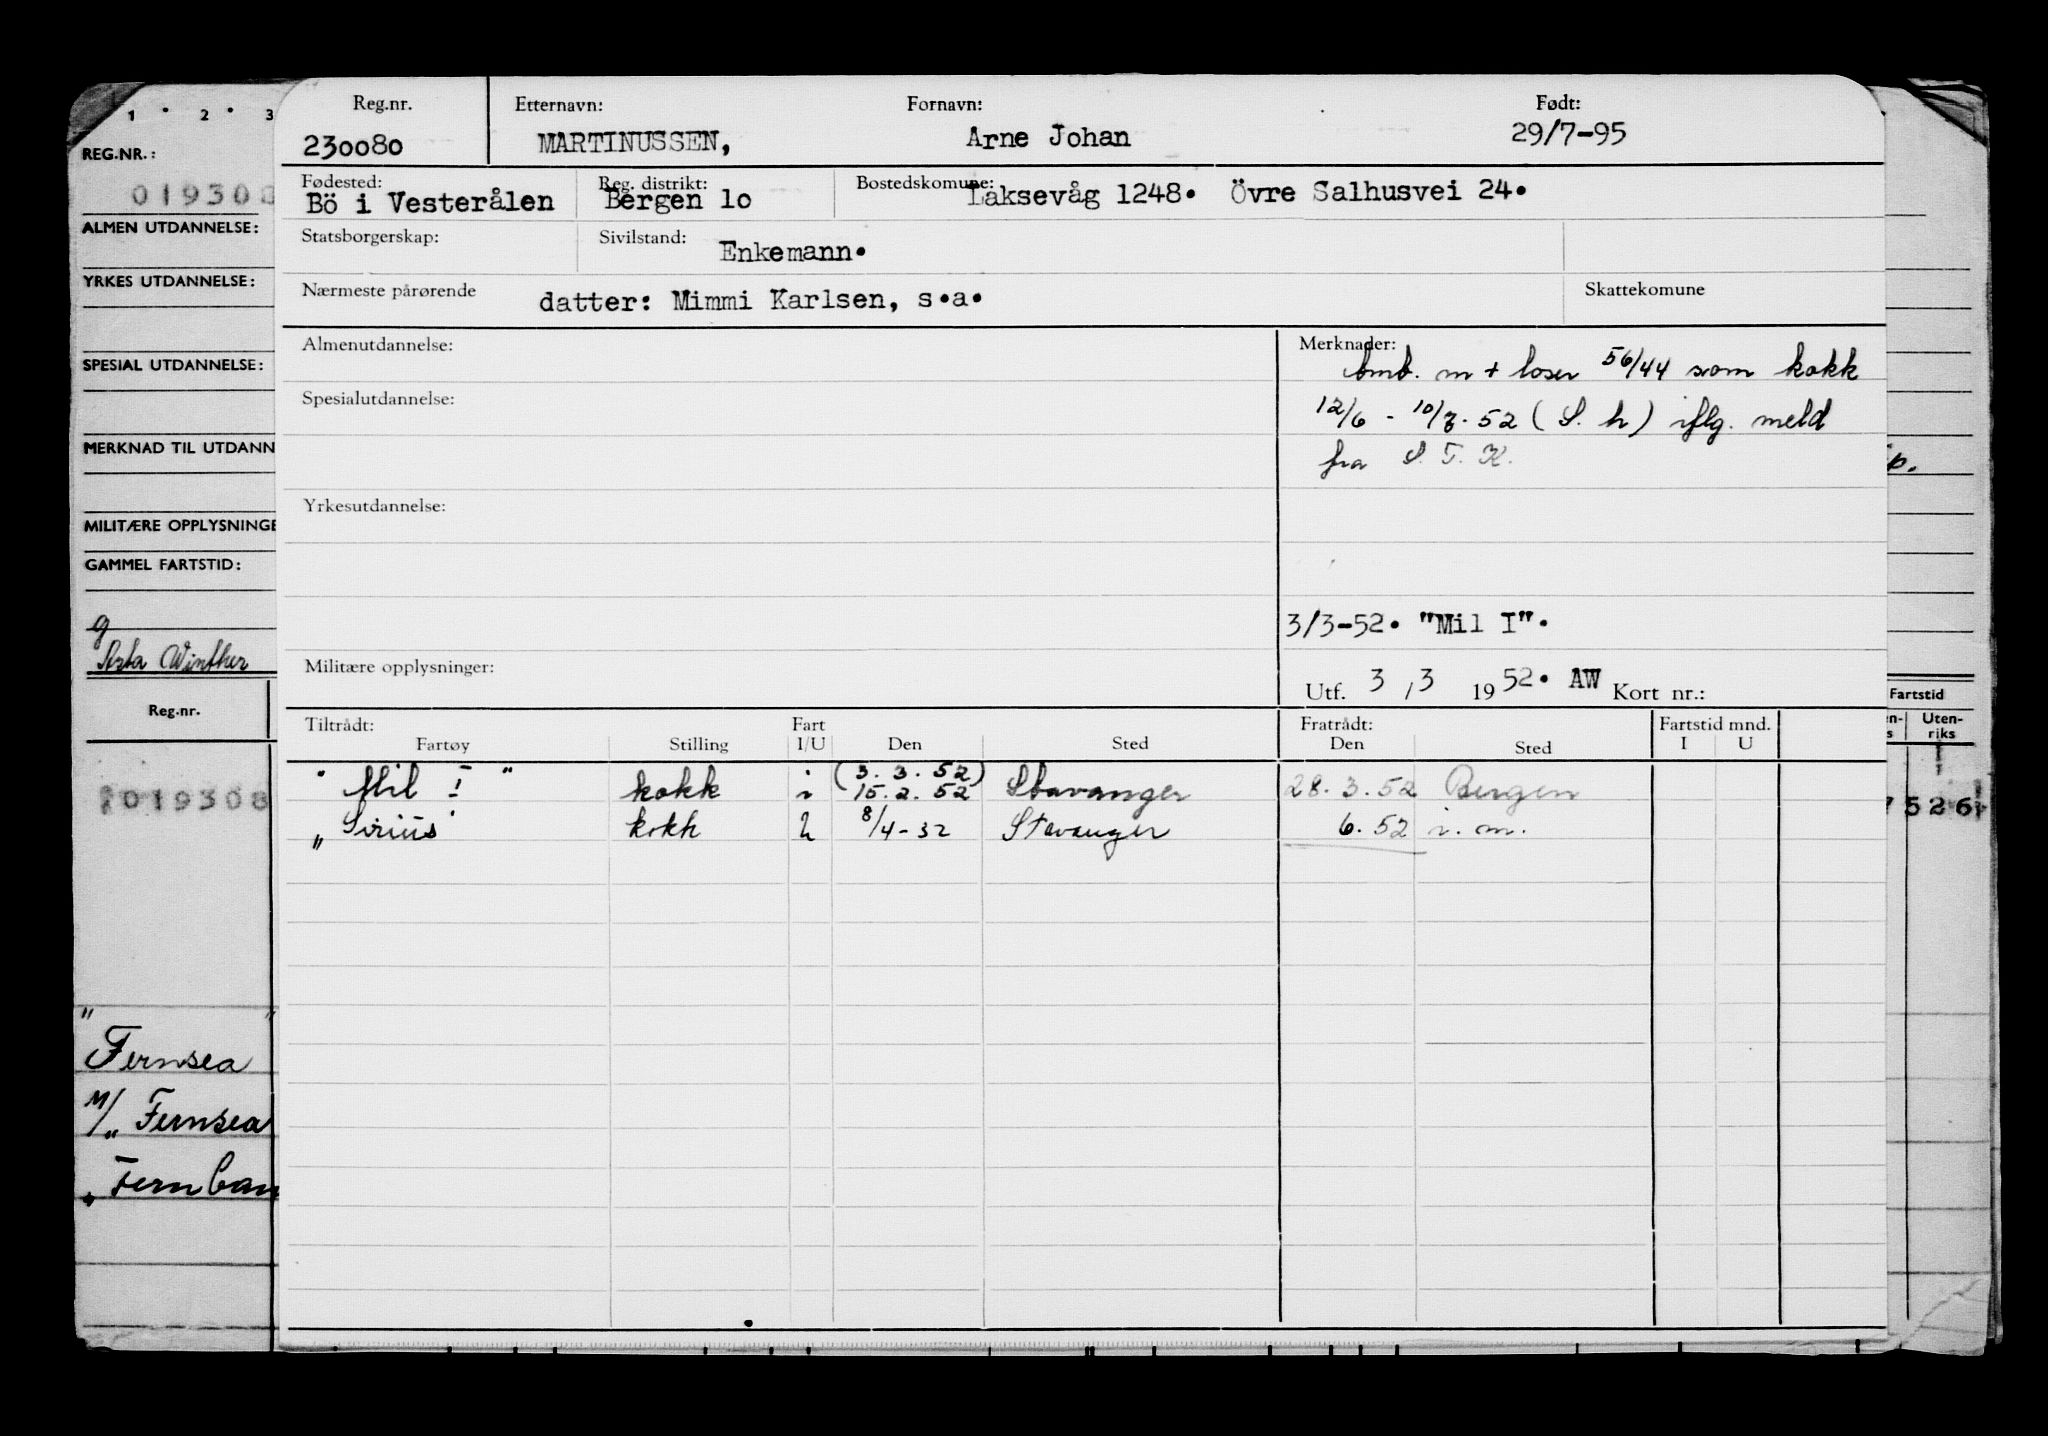 1 • 2 • 3
REG.NR.:
019308
ALMEN UTDANNELSE:
YRKES UTDANNELSE:
SPESIAL UTDANNELSE:
MERKNAD TIL UTDANN
MILITÆRE OPPLYSNINGE
GAMMEL FARTSTID:
g
Winther
Reg.nr.
019308
" "
Fernsea
M/" Fernsea
Reg.nr. Etternavn: Fornavn: Født:
230080 MARTINUSSEN, Arne Johan 29/7-95
Fødested: Reg. distrikt: Bostedskomune:
Bö i Vesterålen Bergen 1o Laksevåg 1248. Övre Salhusvei 24.
Statsborgerskap: Sivilstand: Enkemann.
Nærmeste pårørende datter: Mimmi Karlsen, s.a. Skattekomune
Almenutdannelse: Merknader:
m + loser 56/44 som kokk
Spesialutdannelse: 12/6 - 10/7.52 (S. h) iflg. meld
fra S. T. K.
Yrkesutdannelse:
3/3-52. "Mil I".
Militære opplysninger:
Utf. 3 / 3 1952. AW Kort nr.:
Tiltrådt: Fart Fratrådt: Fartstid mnd.
Fartøy Stilling I/U Den Sted Den Sted I U
"Mil I" kokk i (3.3.52) 15.2.52 Stavanger 28.3.52 Bergen
"Sirius" kokk 8/4-52 Stavanger 6.52 i.m.
p.
Fartstid
Uten-
riks
526